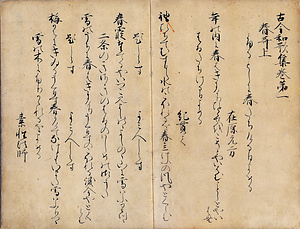 古今和歌集巻第一
春哥上
ふるとしに春たちける日よめる
在原元方
年の内に春はきにけりひとゝせをこそとやいはむことしとや
いはむ
はるたちける日よめる
紀貫之
袖ひちてむすひし水のこほれるを春立けふの風やとくらむ
題しらす　よみ人しらす
春霞たてるやいつこみよしのゝよしのゝ山に雪はふりつゝ
二条のきさきの春のはしめの御うた
雪の内に春はきにけりうくひすのこほれる涙今やとくらむ
題しらす　よみ人しらす
梅かえにきゐるうくひす春かけてなけともいまた雪はふりつゝ
雪の木にふりかゝれるをよめる
素性法師